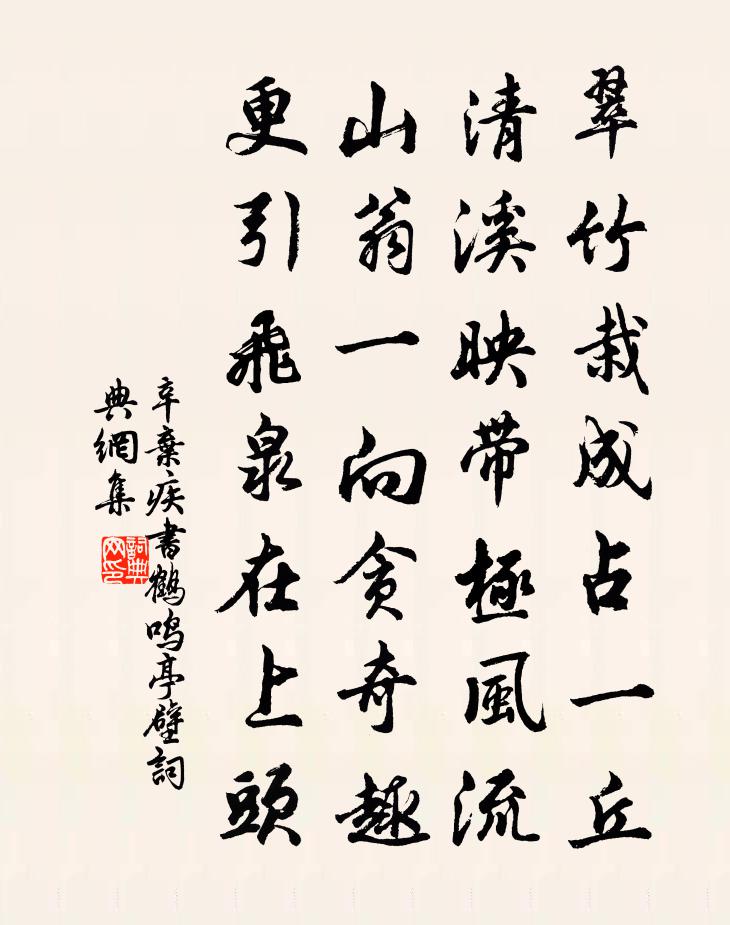 翠竹栽成占一丘
清溪映带極風流
山翁一向贪奇趣
更引飛泉在上頭
辛棄疾書鶴鸣亭壁詞
典網集
詞典网印